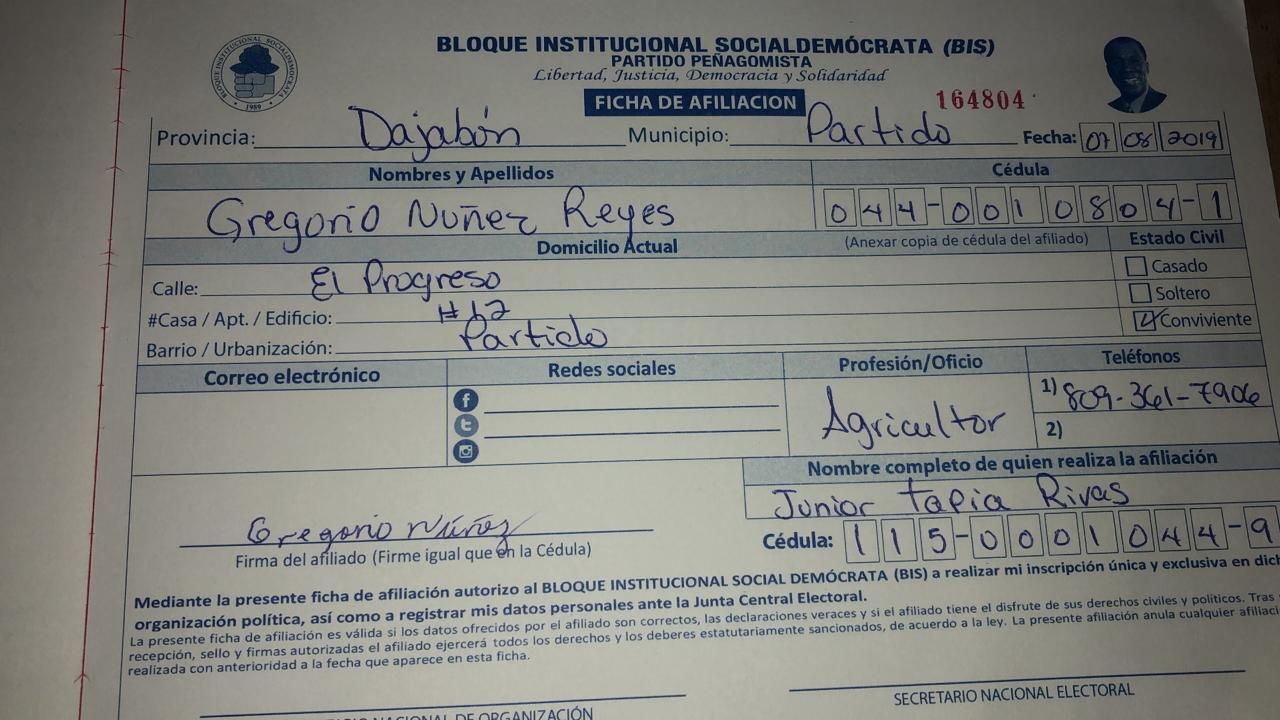 BLOQUE INSTITUCIONAL SOCIALDEMÓCRATA (BIS)
PARTIDO PEÑAGOMISTA
Libertad, Justicia, Democracia y Solidaridad
BLOQUE INSTITUCIONAL SOCIALDEMOCRATA
1989
FICHA DE AFILIACION 164804
Provincia: Dajabón Municipio: Partido Fecha: 07 08 2019
Nombres y Apellidos Cédula
Gregorio Nuñez Reyes 044-0010804-1
Domicilio Actual (Anexar copia de cédula del afiliado) Estado Civil
Calle: El Progreso Casado
Soltero
#Casa / Apt. / Edificio: Conviviente
Barrio / Urbanización: Partido
Correo electrónico Redes sociales Profesión/Oficio Teléfonos
Agricultor 1) 809-361-7906
2)
Nombre completo de quien realiza la afiliación
Junior tapia Rivas
Gregorio Núñez
Cédula: 115-0001044-9
Firma del afiliado (Firme igual que en la Cédula)
Mediante la presente ficha de afiliación autorizo al BLOQUE INSTITUCIONAL SOCIAL DEMÓCRATA (BIS) a realizar mi inscripción única y exclusiva en dich
organización política, así como a registrar mis datos personales ante la Junta Central Electoral.
La presente ficha de afiliación es válida si los datos ofrecidos por el afiliado son correctos, las declaraciones veraces y si el afiliado tiene el disfrute de sus derechos civiles y políticos. Tras
recepción, sello y firmas autorizadas el afiliado ejercerá todos los derechos y los deberes estatutariamente sancionados, de acuerdo a la ley. La presente afiliación anula cualquier afiliaci
realizada con anterioridad a la fecha que aparece en esta ficha.
SECRETARIO NACIONAL ELECTORAL
NACIONAL DE ORGANIZACIÓN